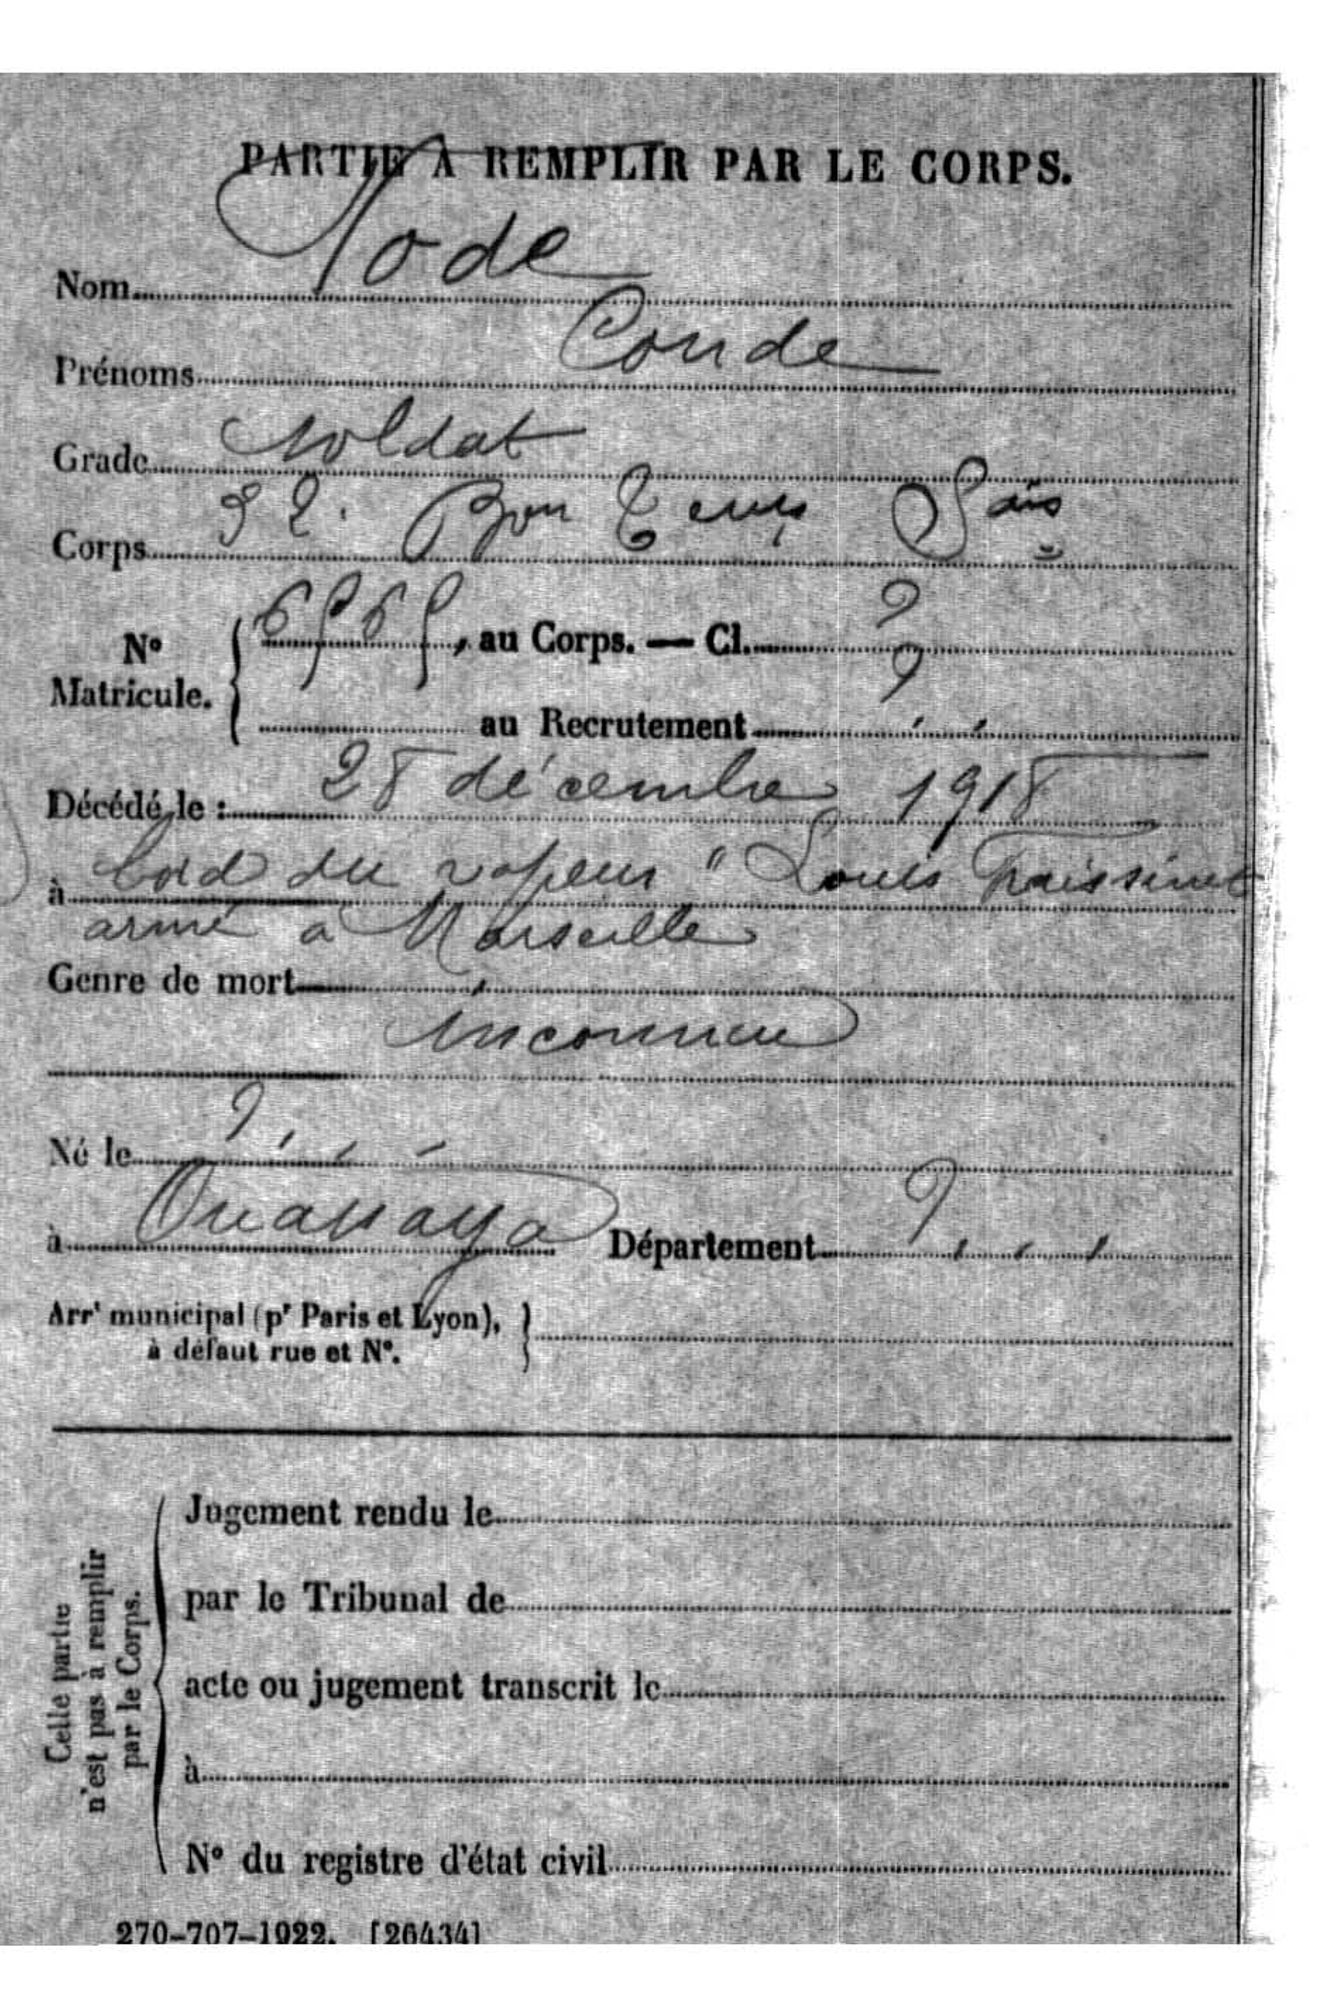 PARTIE À REMPLIR PAR LE CORPS.
Nom
Prénoms Conde
Grade Soldat
Corps Bon
N° Matricule. au Corps. — Cl. ?
au Recrutement ?
Décédé le : 28 décembre 1918
à bord du vapeur "Louis Fraissinet
armé à Marseille
Genre de mort
inconnu
Né le ?
à Département ?
Arrt municipal (pr Paris et Lyon),
à défaut rue et N°.
Celle partie
n'est pas à remplir
par le Corps.
Jugement rendu le
par le Tribunal de
acte ou jugement transcrit le
à
N° du registre d'état civil
270-707-1922. [26434]